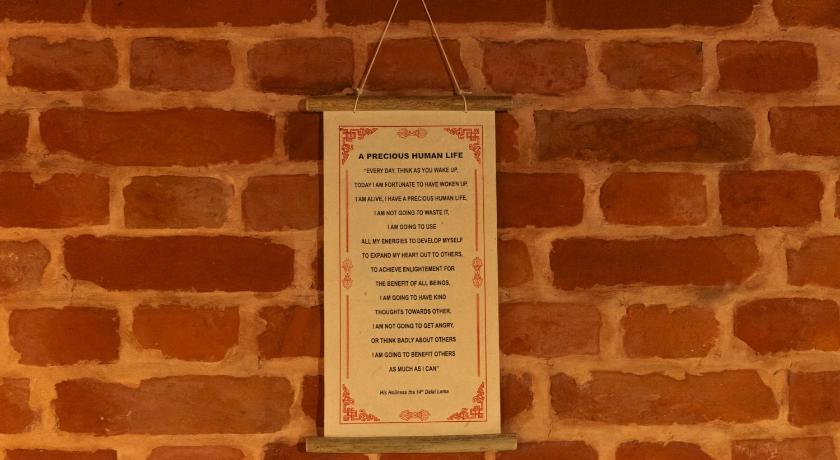 A PRECIOUS HUMAN LIFE
"EVERY DAY, THINK AS YOU WAKE UP,
TODAY I AM FORTUNATE TO HAVE WOKEN UP,
I AM ALIVE, I HAVE A PRECIOUS HUMAN LIFE,
I AM NOT GOING TO WASTE IT.
I AM GOING TO USE
ALL MY ENERGIES TO DEVELOP MYSELF
TO EXPAND MY HEART OUT TO OTHERS,
TO ACHIEVE ENLIGHTEMENT FOR
THE BENEFIT OF ALL BEINGS,
I AM GOING TO HAVE KIND
THOUGHTS TOWARDS OTHER,
I AM NOT GOING TO GET ANGRY,
OR THINK BADLY ABOUT OTHERS
I AM GOING TO BENEFIT OTHERS
AS MUCH AS I CAN"
His Holiness the 14th Dalai Lama